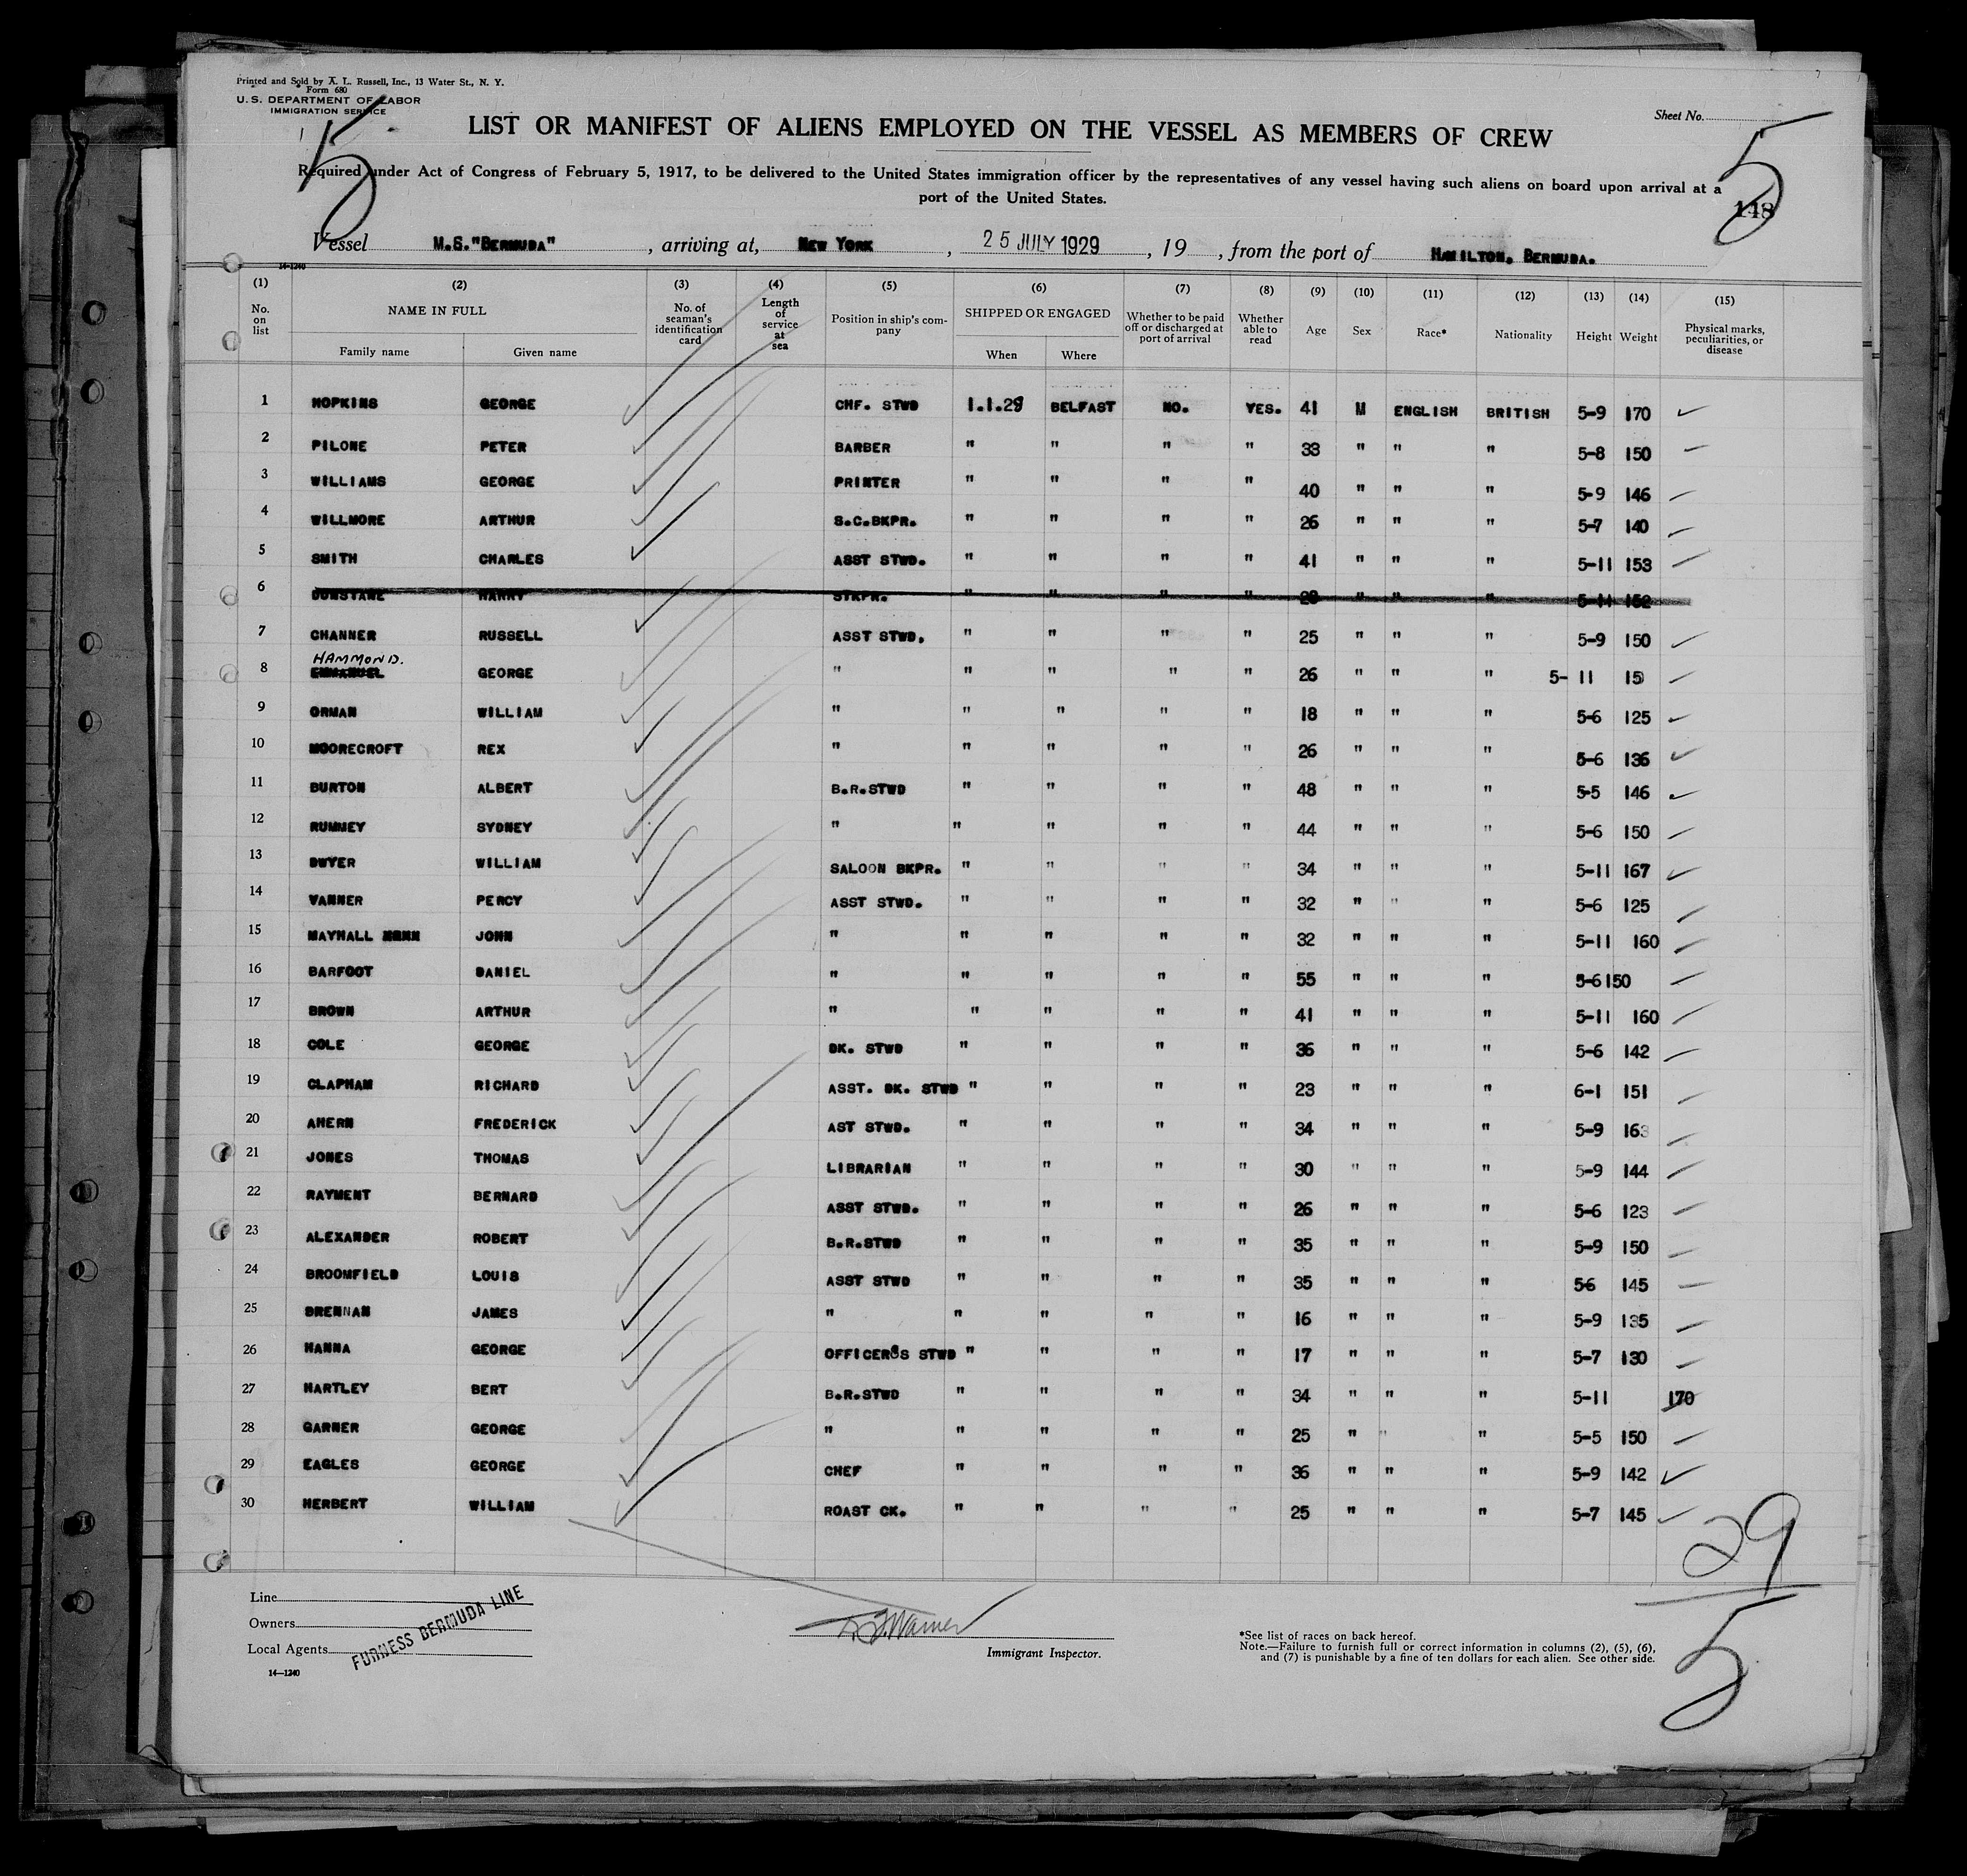 Printed and Sold by A. L. Russell, Inc., 13 Water St., N. Y.
Form 680
U.S. DEPARTMENT OF LABOR
IMMIGRATION SERVICE
Sheet No.
5
5
LIST OR MANIFEST OF ALIENS EMPLOYED ON THE VESSEL AS MEMBERS OF CREW
Required under Act of Congress of February 5, 1917, to be delivered to the United States immigration officer by the representatives of any vessel having such aliens on board upon arrival at a
port of the United States.
148
Vessel M.S."BERMUDA", arriving at, NEW YORK, 25 JULY 1929, 19, from the port of HAMILTON, BERMUDA.
14-1240
(1) (2) (3) (4) (5) (6) (7) (8) (9) (10) (11) (12) (13) (14) (15)
No. on list NAME IN FULL Family name Given name No. of seaman's identification card Length of service at sea Position in ship's company SHIPPED OR ENGAGED When Where Whether to be paid off or discharged at port of arrival Whether able to read Age Sex Race* Nationality Height Weight Physical marks, peculiarities, or disease
1 HOPKINS GEORGE CHF. STWD 1.1.29 BELFAST NO. YES. 41 M ENGLISH BRITISH 5-9 170
2 PILONE PETER BARBER " " " " 33 " " " 5-8 150
3 WILLIAMS GEORGE PRINTER " " " " 40 " " " 5-9 146
4 WILLMORE ARTHUR S.C.BKPR. " " " " 26 " " " 5-7 140
5 SMITH CHARLES ASST STWD. " " " " 41 " " " 5-11 153
6 DUNSTANE HARRY STKPR. " " " " 28 " " " 5-11 152
7 CHANNER RUSSELL ASST STWD. " " " " 25 " " " 5-9 150
HAMMOND.
8 EMMANUEL GEORGE " " " " " 26 " " " 5-11 15
9 ORMAN WILLIAM " " " " " 18 " " " 5-6 125
10 MOORECROFT REX " " " " " 26 " " " 5-6 136
11 BURTON ALBERT B.R.STWD " " " " 48 " " " 5-5 146
12 RUMNEY SYDNEY " " " " " 44 " " " 5-6 150
13 DWYER WILLIAM SALOON BKPR. " " " " 34 " " " 5-11 167
14 VANNER PERCY ASST STWD. " " " " 32 " " " 5-6 125
15 MAYHALL JOHN " " " " " 32 " " " 5-11 160
16 BARFOOT DANIEL " " " " " 55 " " " 5-6 150
17 BROWN ARTHUR " " " " " 41 " " " 5-11 160
18 COLE GEORGE DK. STWD " " " " 36 " " " 5-6 142
19 CLAPHAM RICHARD ASST. DK. STWD " " " " 23 " " " 6-1 151
20 AHERN FREDERICK AST STWD. " " " " 34 " " " 5-9 163
21 JONES THOMAS LIBRARIAN " " " " 30 " " " 5-9 144
22 RAYMENT BERNARD ASST STWD. " " " " 26 " " " 5-6 123
23 ALEXANDER ROBERT B.R.STWD " " " " 35 " " " 5-9 150
24 BROOMFIELD LOUIS ASST STWD " " " " 35 " " " 56 145
25 BRENNAN JAMES " " " " " 16 " " " 5-9 135
26 HANNA GEORGE OFFICER'S STWD " " " " 17 " " " 5-7 130
27 HARTLEY BERT B.R.STWD " " " " 34 " " " 5-11 170
28 GARNER GEORGE " " " " " 25 " " " 5-5 150
29 EAGLES GEORGE CHEF " " " " 36 " " " 5-9 142
30 HERBERT WILLIAM ROAST CK. " " " " 25 " " " 5-7 145
29
5
Line
Owners
Local Agents
FURNESS BERMUDA LINE
14—1240
Immigrant Inspector.
*See list of races on back hereof.
Note.—Failure to furnish full or correct information in columns (2), (5), (6),
and (7) is punishable by a fine of ten dollars for each alien. See other side.